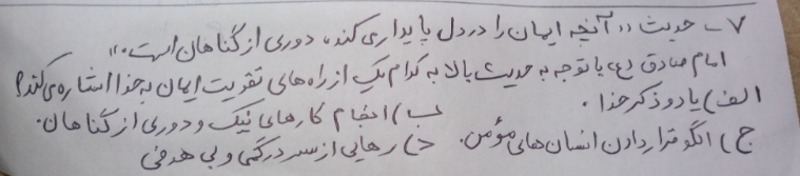 ۷ـ حدیث «آنچه ایمان را در دل پایداری کند، دوری از گناهان است.»
امام صادق (ع) با توجه به حدیث بالا به کدام یک از راه های تقویت ایمان به خدا اشاره می کند؟
الف) یاد و ذکر خدا. ب) انجام کارهای نیک و دوری از گناهان.
ج) الگو قرار دادن انسان های مؤمن. د) رهایی از سردرگمی و بی هدفی